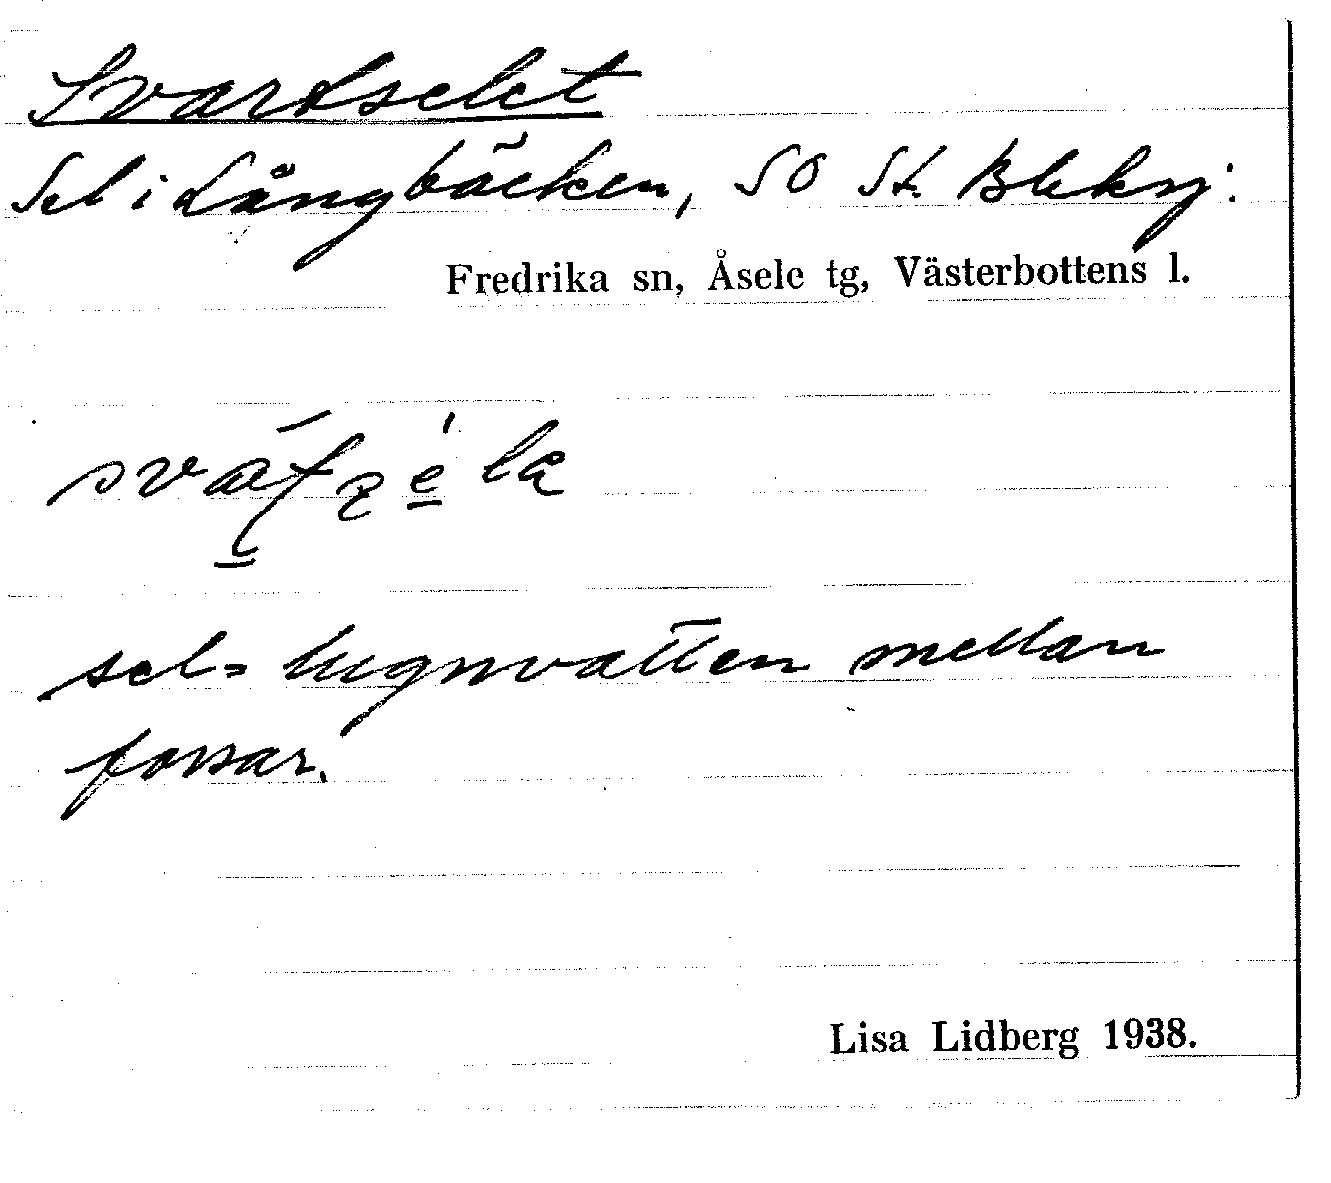 Svartselet
Sel i Långbäcken, SO St. Bleksj:
Fredrika sn, Åsele tg, Västerbottens l.
sel = lugnvatten mellan
forsar.
Lisa Lidberg 1938.